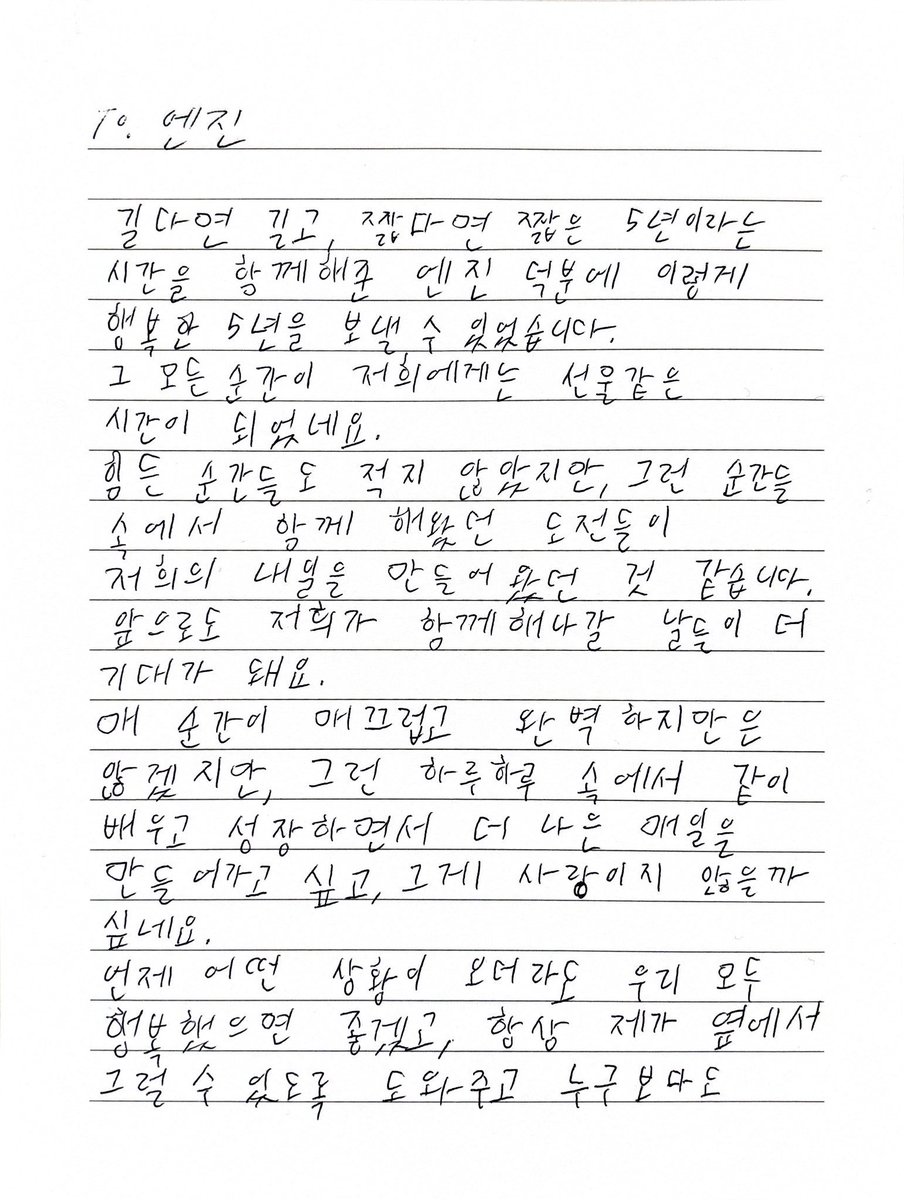 To. 엔진
길다면 길고, 짧다면 짧은 5년이라는
시간을 함께해준 엔진 덕분에 이렇게
행복한 5년을 보낼 수 있었습니다.
그 모든 순간이 저희에게는 선물같은
시간이 되었네요.
힘든 순간들도 적지 않았지만, 그런 순간들
속에서 함께 해왔던 도전들이
저희의 내일을 만들어 왔던 것 같습니다.
앞으로도 저희가 함께해나갈 날들이 더
기대가 돼요.
매 순간이 매끄럽고 완벽하지만은
않겠지만, 그런 하루하루 속에서 같이
배우고 성장하면서 더 나은 매일을
만들어가고 싶고, 그게 사랑이지 않을까
싶네요.
언제 어떤 상황이 오더라도 우리 모두
행복했으면 좋겠고, 항상 제가 옆에서
그럴 수 있도록 도와주고 누구보다도